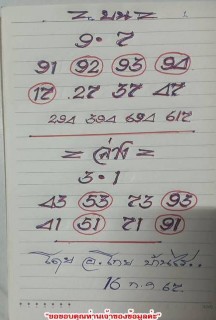 = บน =
9 · 7
91 92 93 94
17 27 37 47
294 394 694 617
= ล่าง =
3 · 1
43 53 73 93
41 51 71 91
โดย อ.ไทย บ้านไร่..
16 ก.ค 67
"ขอขอบคุณท่านเจ้าของข้อมูลค่ะ"